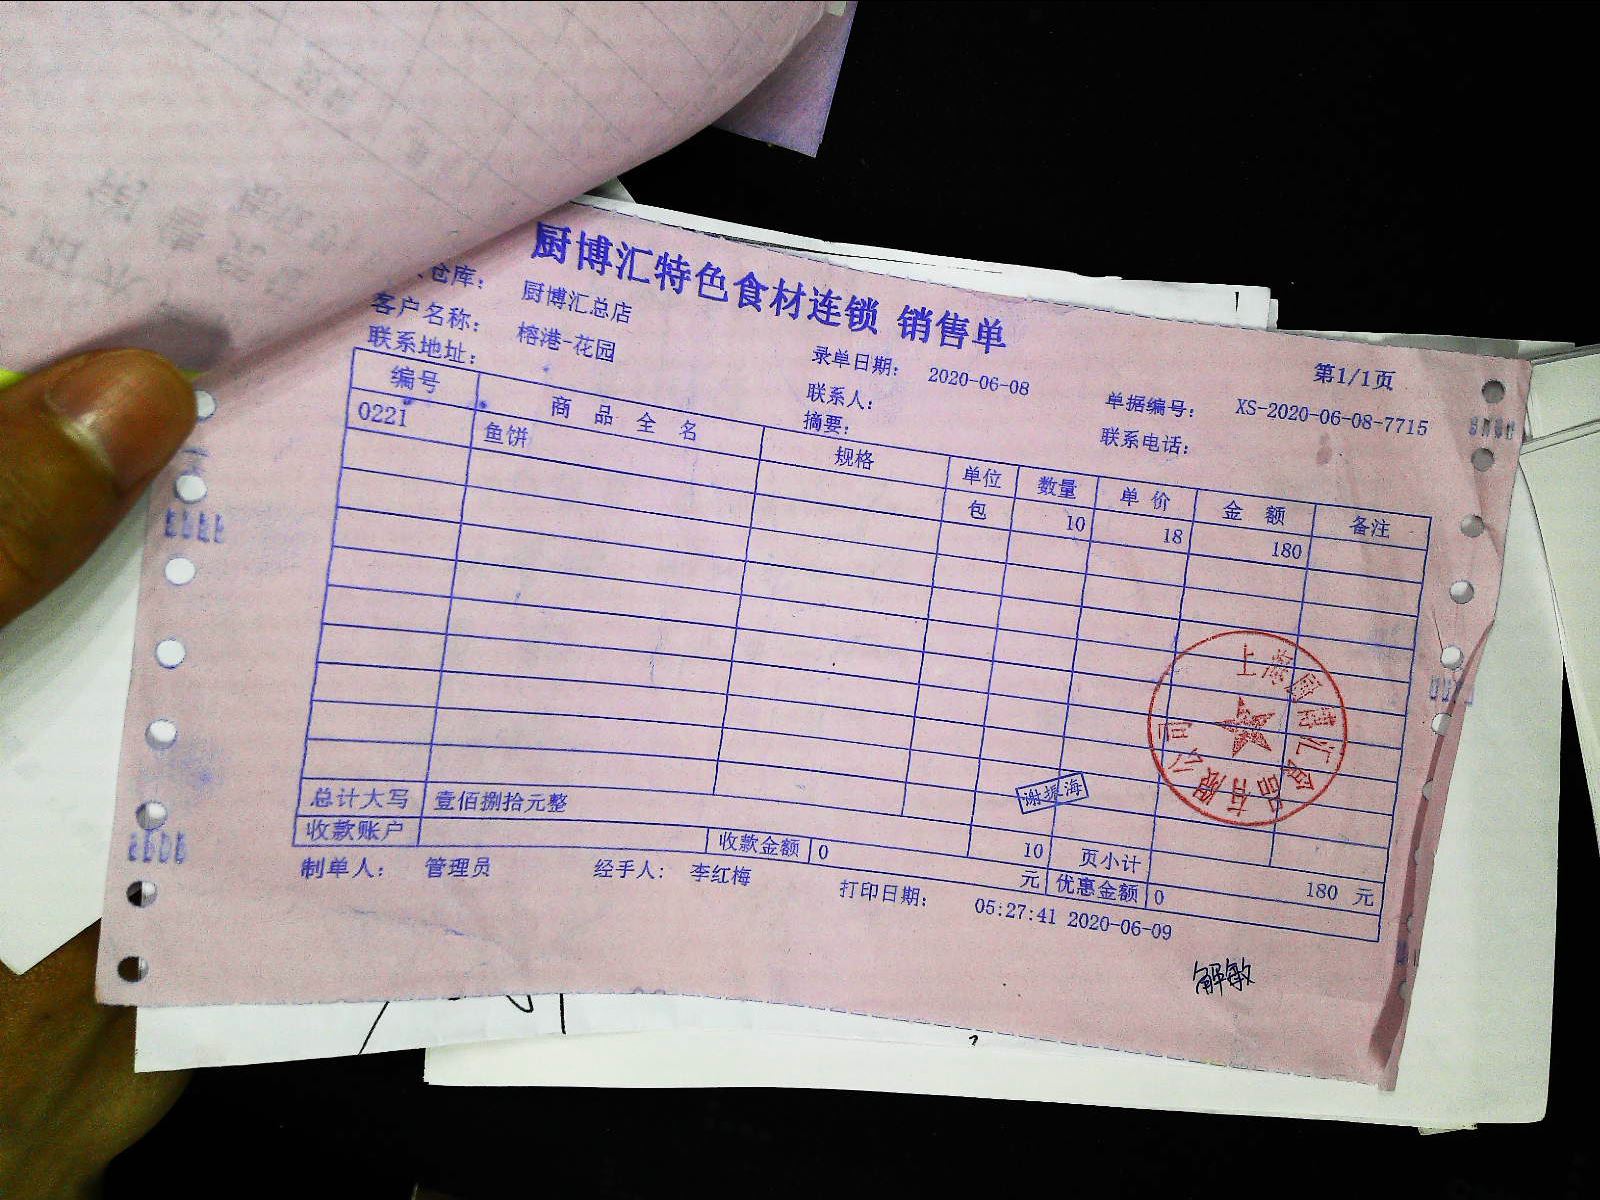 厨博汇特色食材连锁 销售单
第1/1页
仓库： 厨博汇总店 录单日期： 2020-06-08 单据编号： XS-2020-06-08-7715
客户名称： 榕港-花园 联系人： 联系电话：
联系地址： 摘要：
编号 商品全名 规格 单位 数量 单价 金额 备注
0221 鱼饼 包 10 18 180
上海厨博汇食品有限公司
谢振海
总计大写 壹佰捌拾元整 10 页小计 180 元
收款账户 收款金额 0 元 优惠金额 0
制单人： 管理员 经手人： 李红梅 打印日期： 05:27:41 2020-06-09
解敏